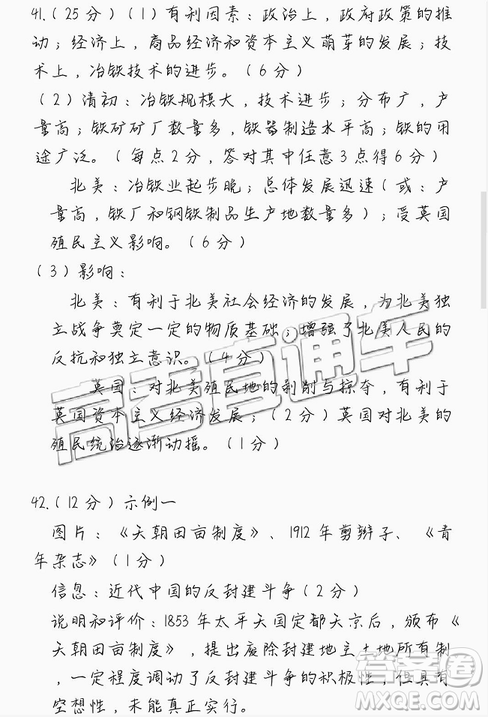 41.(25分)(1)有利因素：政治上，政府政策的推
动；经济上，商品经济和资本主义萌芽的发展；技
术上，冶铁技术的进步。(6分)
(2)清初：冶铁规模大，技术进步；分布广，产
量高；铁矿矿厂数量多，铁器制造水平高；铁的用
途广泛。(每点2分，答对其中任意3点得6分)
北美：冶铁业起步晚；总体发展迅速(或：产
量高，铁厂和钢铁制品生产地数量多)；受英国
殖民主义影响。(6分)
(3)影响：
北美：有利于北美社会经济的发展，为北美独
立战争奠定一定的物质基础；增强了北美人民的
反抗和独立意识。(4分)
英国：对北美殖民地的剥削与掠夺，有利于
英国资本主义经济发展；(2分)英国对北美的
殖民统治逐渐动摇。(1分)
高考直通车
42.(12分)示例一
图片：《天朝田亩制度》、1912年剪辫子、《青
年杂志》(1分)
信息：近代中国的反封建斗争(2分)
说明和评价：1853年太平天国定都天京后，颁布《
天朝田亩制度》，提出废除封建地主土地所有制
，一定程度调动了反封建斗争的积极性，但具有
空想性，未能真正实行。
答案圈
MXQE.COM